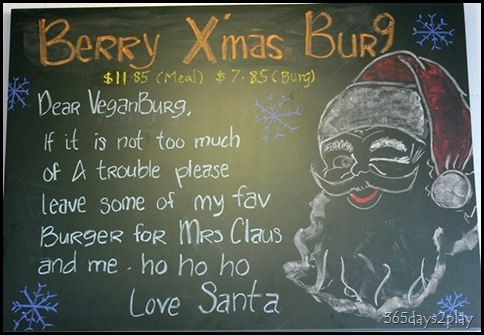 Berry X'mas Burg
$11.85 (Meal) $7.85 (Burg)
Dear VeganBurg,
If it is not too much
of A trouble please
leave some of my fav
Burger for Mrs Claus
and me. ho ho ho
Love Santa
365days2play